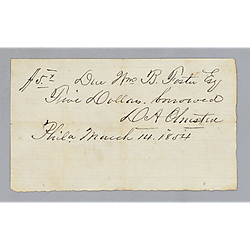 $5 Due Wm B. Foster Esq
Five Dollars. borrowed
D A
Phila March 14. 1854